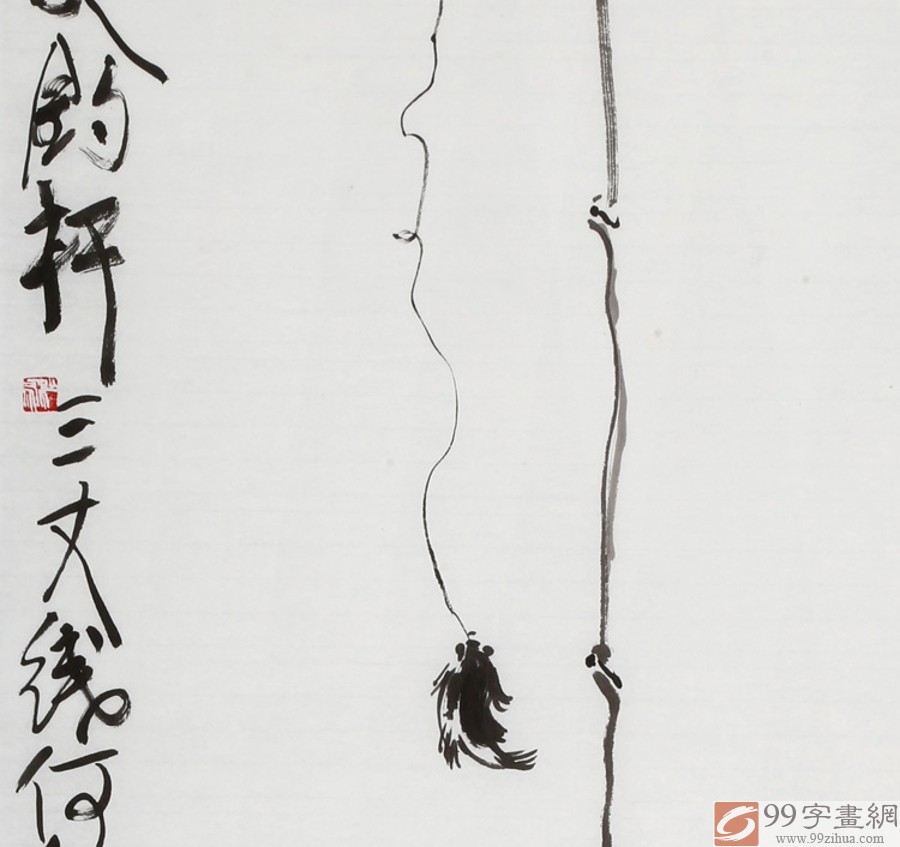 钓杆三丈线何
99字畫網
www.99zihua.com